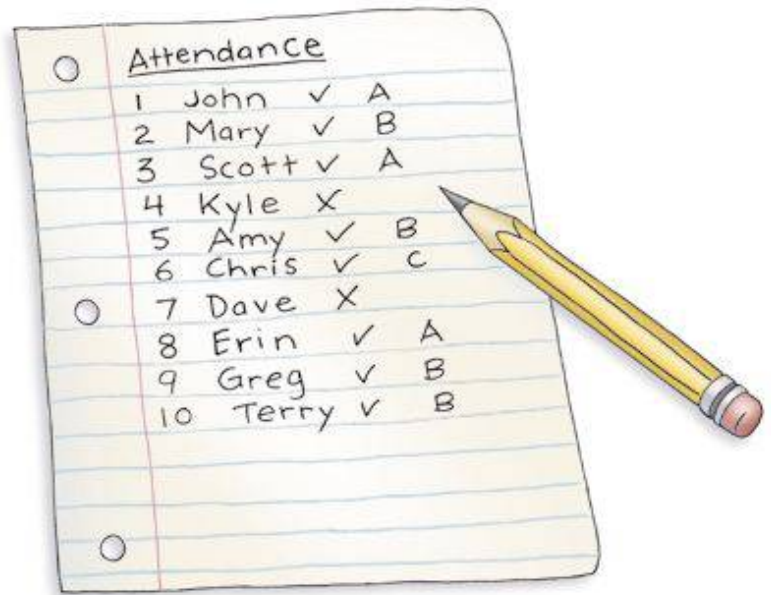 Attendance
1 John ✓ A
2 Mary ✓ B
3 Scott ✓ A
4 Kyle X
5 Amy ✓ B
6 Chris ✓ C
7 Dave X
8 Erin ✓ A
9 Greg ✓ B
10 Terry ✓ B